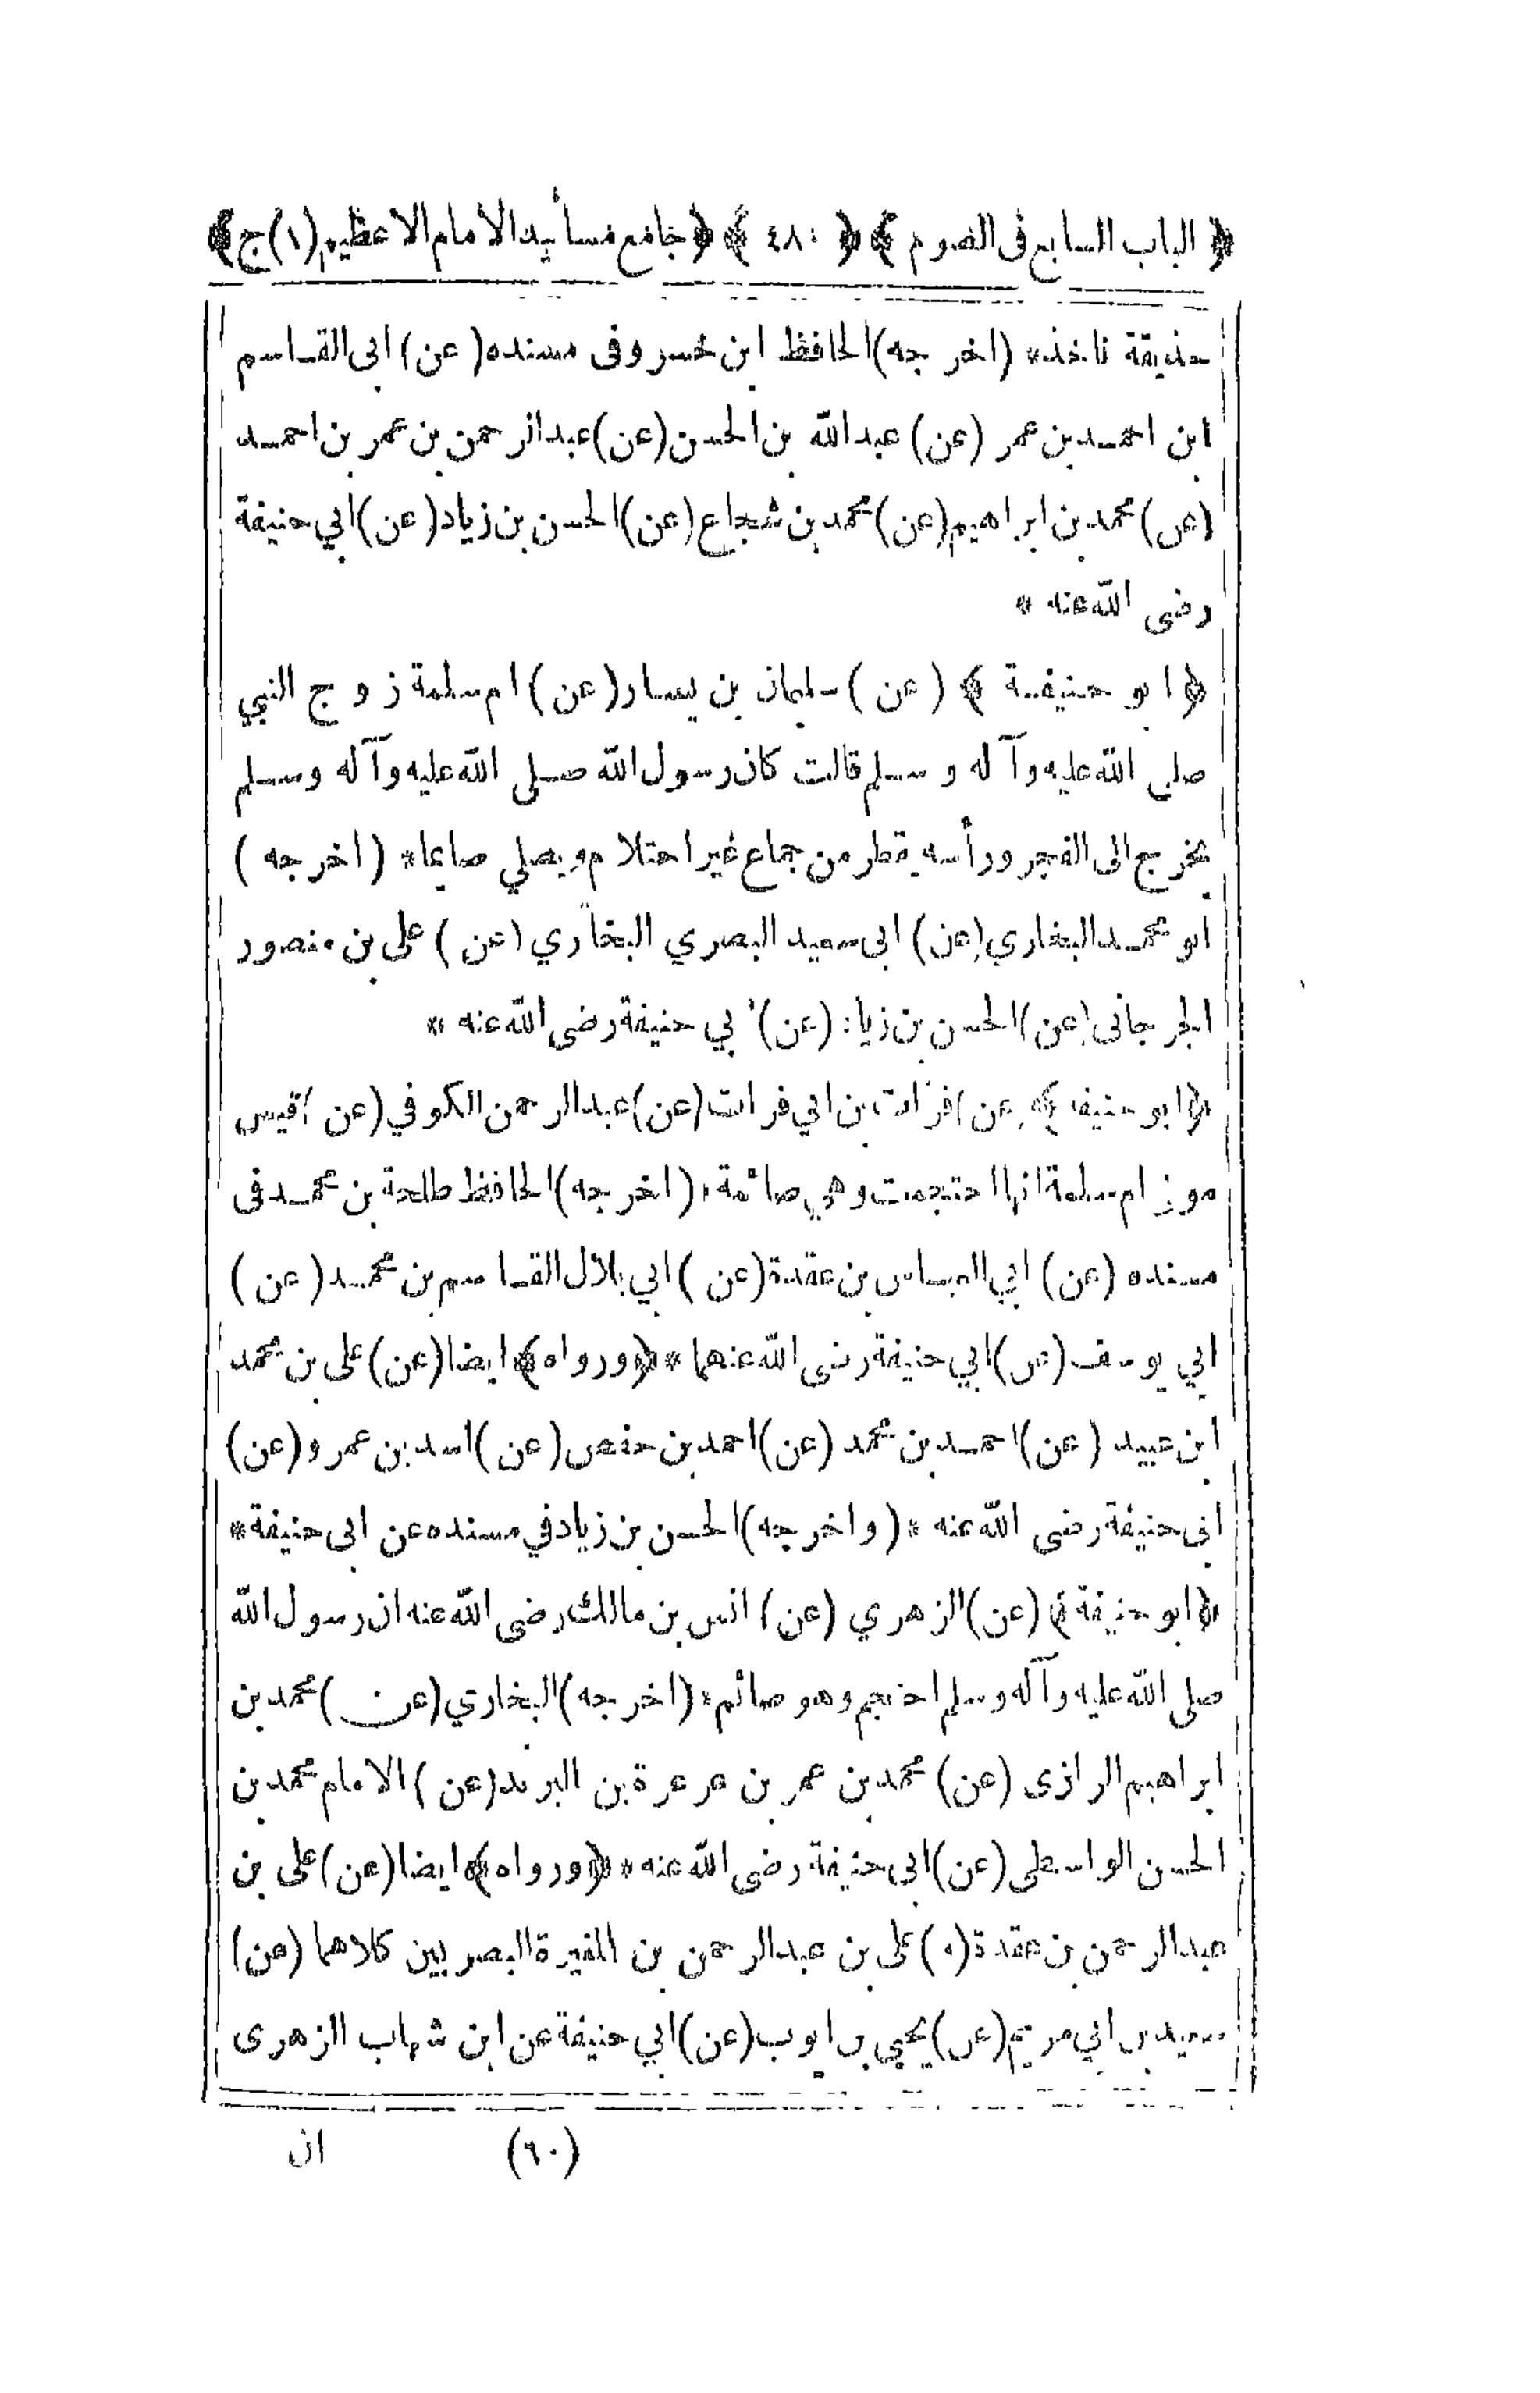 ﴿ الباب السابع فى الصوم ﴾ ﴿ ٤٨٠ ﴾ ﴿ جامع مسانيد الامام الاعظيم (١) ج ﴾
حذيقة ناخذ* (اخر جه) الحافظ ابن خسرو فى مسنده (عن) ابى القاسم
ابن احمد بن عمر (عن) عبدالله بن الحسن (عن) عبدالرحمن بن عمر بن احمد
(عن) محمد بن ابراهيم (عن) محمد بن شجاع (عن) الحسن بن زياد (عن) ابي حنيفة
رضى الله عنه *
﴿ ابو حنيفة ﴾ (عن) سليمان بن يسار (عن) ام سلمة زوج النبي
صلى الله عليه وآله وسلم قالت كان رسول الله صلى الله عليه وآله وسلم
يخرج الى الفجر ورأسه يقطر من جماع غير احتلام ويصلي صائما* (اخر جه)
ابو محمد البخاري (عن) ابى سعيد البصري البخاري (عن) على بن منصور
الجرجانى (عن) الحسن بن زياد (عن) ابي حنيفة رضى الله عنه *
﴿ ابو حنيفة ﴾ (عن) فرات بن ابي فرات (عن) عبدالرحمن الكوفي (عن) قيس
ام سلمة انها احتجمت وهي صائمة* (اخر جه) الحافظ طلحة بن محمد فى
مسنده (عن) ابي العباس بن عقدة (عن) ابي بلال القاسم بن محمد (عن)
ابي يوسف (عن) ابي حنيفة رضى الله عنهما * ﴿ ورواه ﴾ ايضا (عن) على بن محمد
ابن عبيد (عن) احمد بن محمد (عن) احمد بن حفص (عن) اسد بن عمرو (عن)
ابى حنيفة رضى الله عنه * (واخر جه) الحسن بن زياد في مسنده عن ابى حنيفة*
﴿ ابو حنيفة ﴾ (عن) الزهري (عن) انس بن مالك رضى الله عنه ان رسول الله
صلى الله عليه وآله وسلم احتجم وهو صائم* (اخر جه) البخاري (عن) محمد بن
ابراهيم الرازى (عن) محمد بن عمر بن عرعرة بن البرند (عن) الامام محمد بن
الحسن الواسطى (عن) ابى حنيفة رضى الله عنه * ﴿ ورواه ﴾ ايضا (عن) على بن
عبدالرحمن بن عقدة (٠) على بن عبدالرحمن بن المغيرة البصريين كلاهما (عن)
سعيد بن ابي مريم (عن) يحيى بن ايوب (عن) ابي حنيفة عن ابن شهاب الزهرى
(٦٠) ان